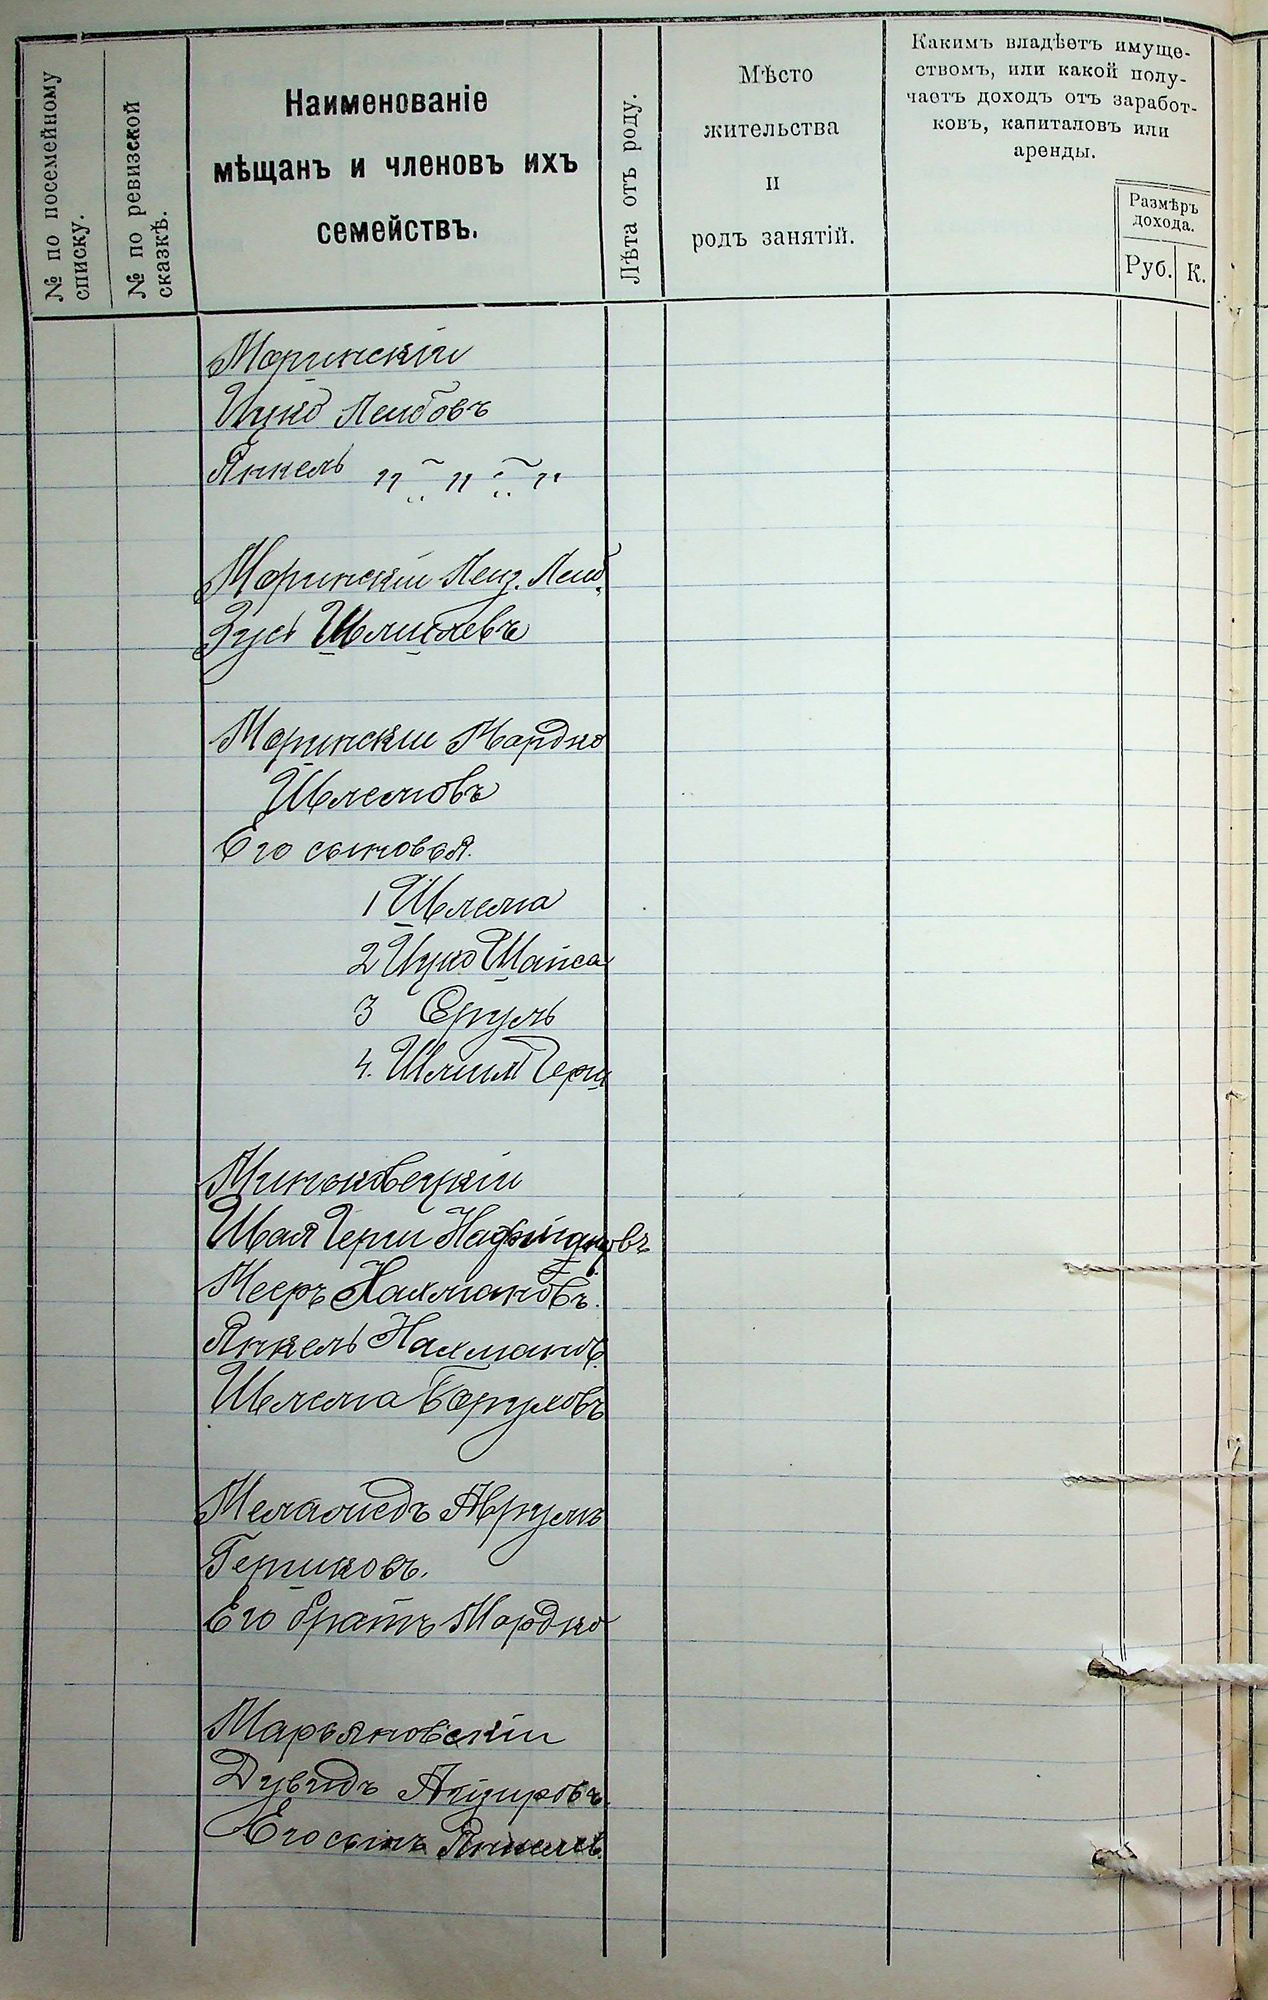 № по посемейному
списку.
№ по ревизской
сказкѣ.
Наименованіе
мѣщанъ и членовъ ихъ
семействъ.
Лѣта отъ роду.
Мѣсто
жительства
и
родъ занятій.
Какимъ владѣетъ имуще-
ствомъ, или какой полу-
чаетъ доходъ отъ заработ-
ковъ, капиталовъ или
аренды.
Размѣръ
дохода.
Руб.
К.
Моринскій
Ицко Лейбовъ
Янкель " " "
Моринскій Лейз. Лейб.
Зусь
Моринскій Мордко
Шлемовъ
Его сыновья.
1 Шлема
2 Ицко
3 Сруль
4. Шлиом Герш
Миньковецкій
Шая Герш
Мееръ Нахмановъ.
Янкель Нахмановъ
Шлема Боруховъ
Меламедъ Аврумъ
Гершковъ.
Его братъ Мордко
Марьяновскій
Дувидъ
Его сынъ Янкель.